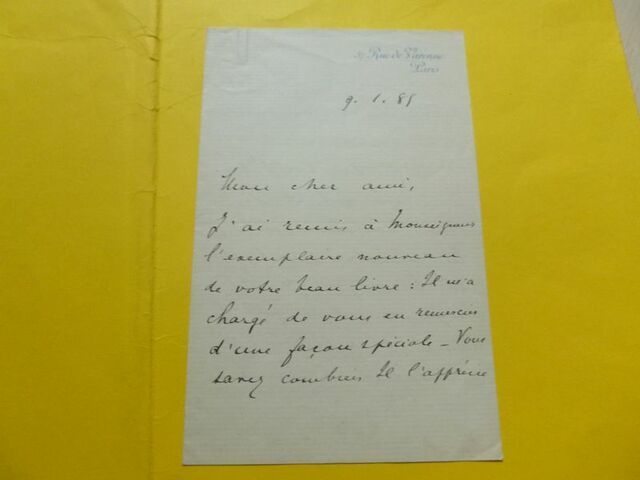 Rue de Varenne
Paris
9. 1. 85
Mon cher ami,
J'ai remis à Monseigneur
l'exemplaire nouveau
de votre beau livre : Il m'a
chargé de vous en remercier
d'une façon spéciale - Vous
savez combien Il l'apprécie